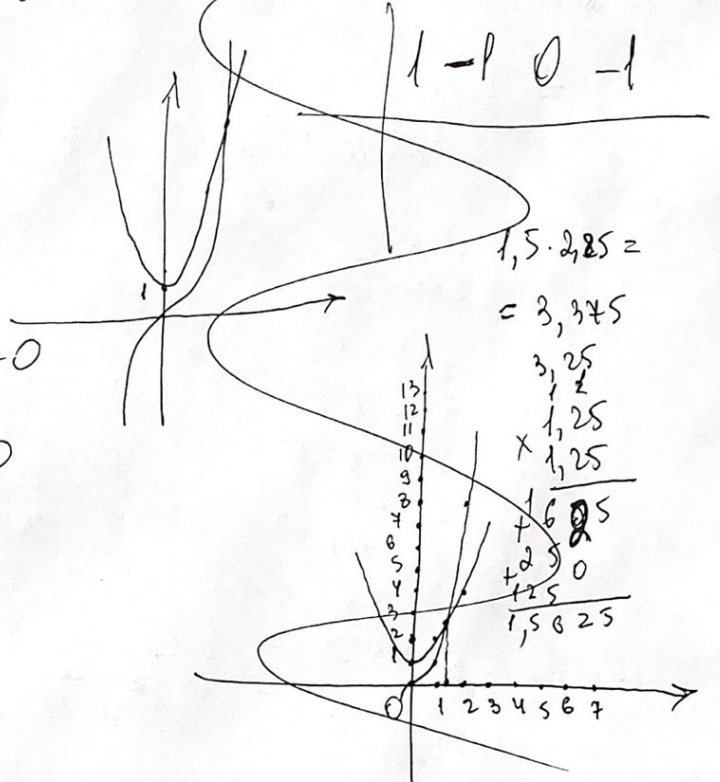 1 -1 0 -1
1,5 · 2,25 =
= 3,375
3,25
1
-0
1,25
× 1,25
1 6 2 5
+ 2 5 0
+ 1 2 5
1,5 6 2 5
13
12
11
10
9
8
7
6
5
4
3
2
1
0 1 2 3 4 5 6 7